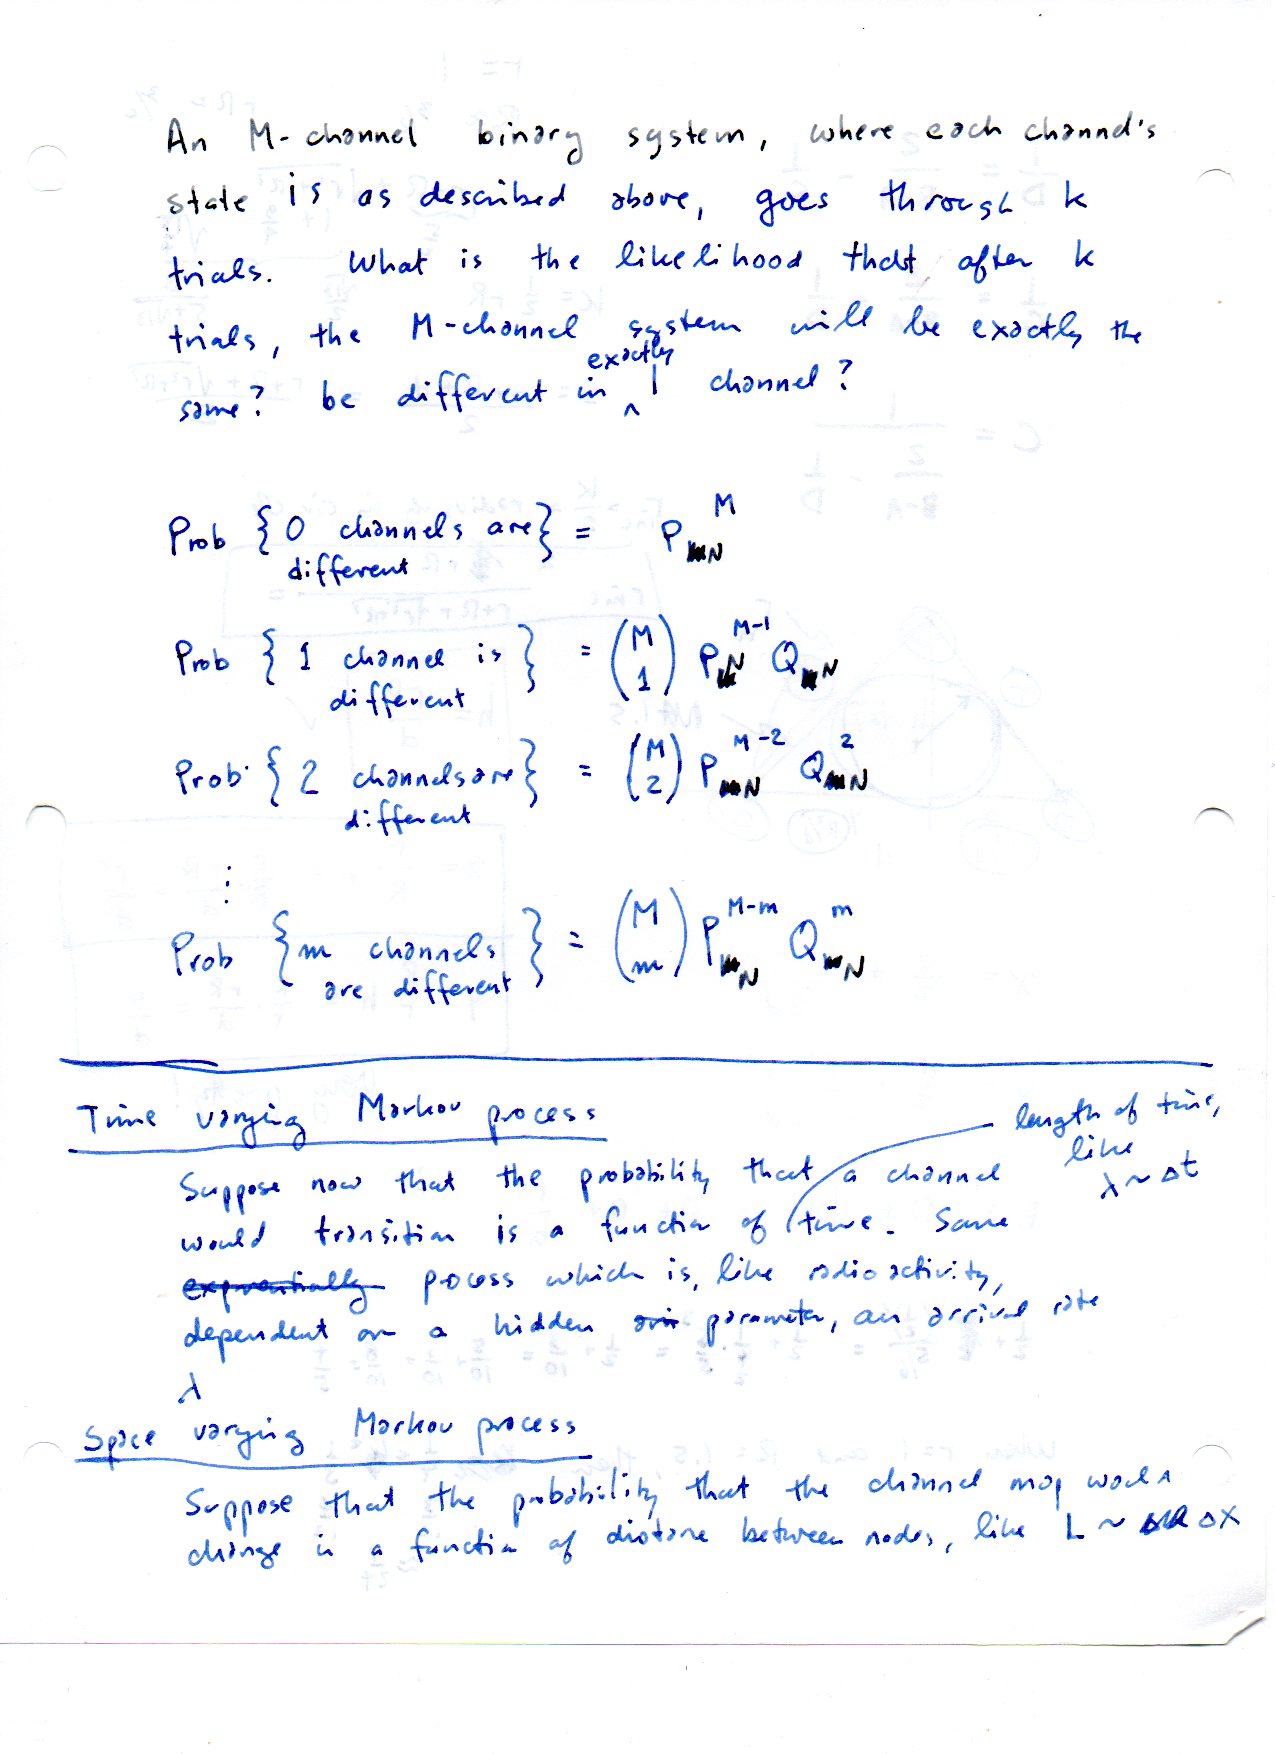 An M-channel binary system, where each channel's
state is as described above, goes through k
trials. What is the likelihood that after k
trials, the M-channel system will be exactly the
same? be different in exactly 1 channel?
Prob { 0 channels are different } = P_N^M
Prob { 1 channel is different } = (M 1) P_N^{M-1} Q_N
Prob { 2 channels are different } = (M 2) P_N^{M-2} Q_N^2
⋮
Prob { m channels are different } = (M m) P_N^{M-m} Q_N^m
Time varying Markov process
length of time,
like
λ ~ Δt
Suppose now that the probability that a channel
would transition is a function of time. Some
exponentially process which is, like radioactivity,
dependent on a hidden parameter, an arrival rate
λ
Space varying Markov process
Suppose that the probability that the channel map would
change is a function of distance between nodes, like L ~ Δx